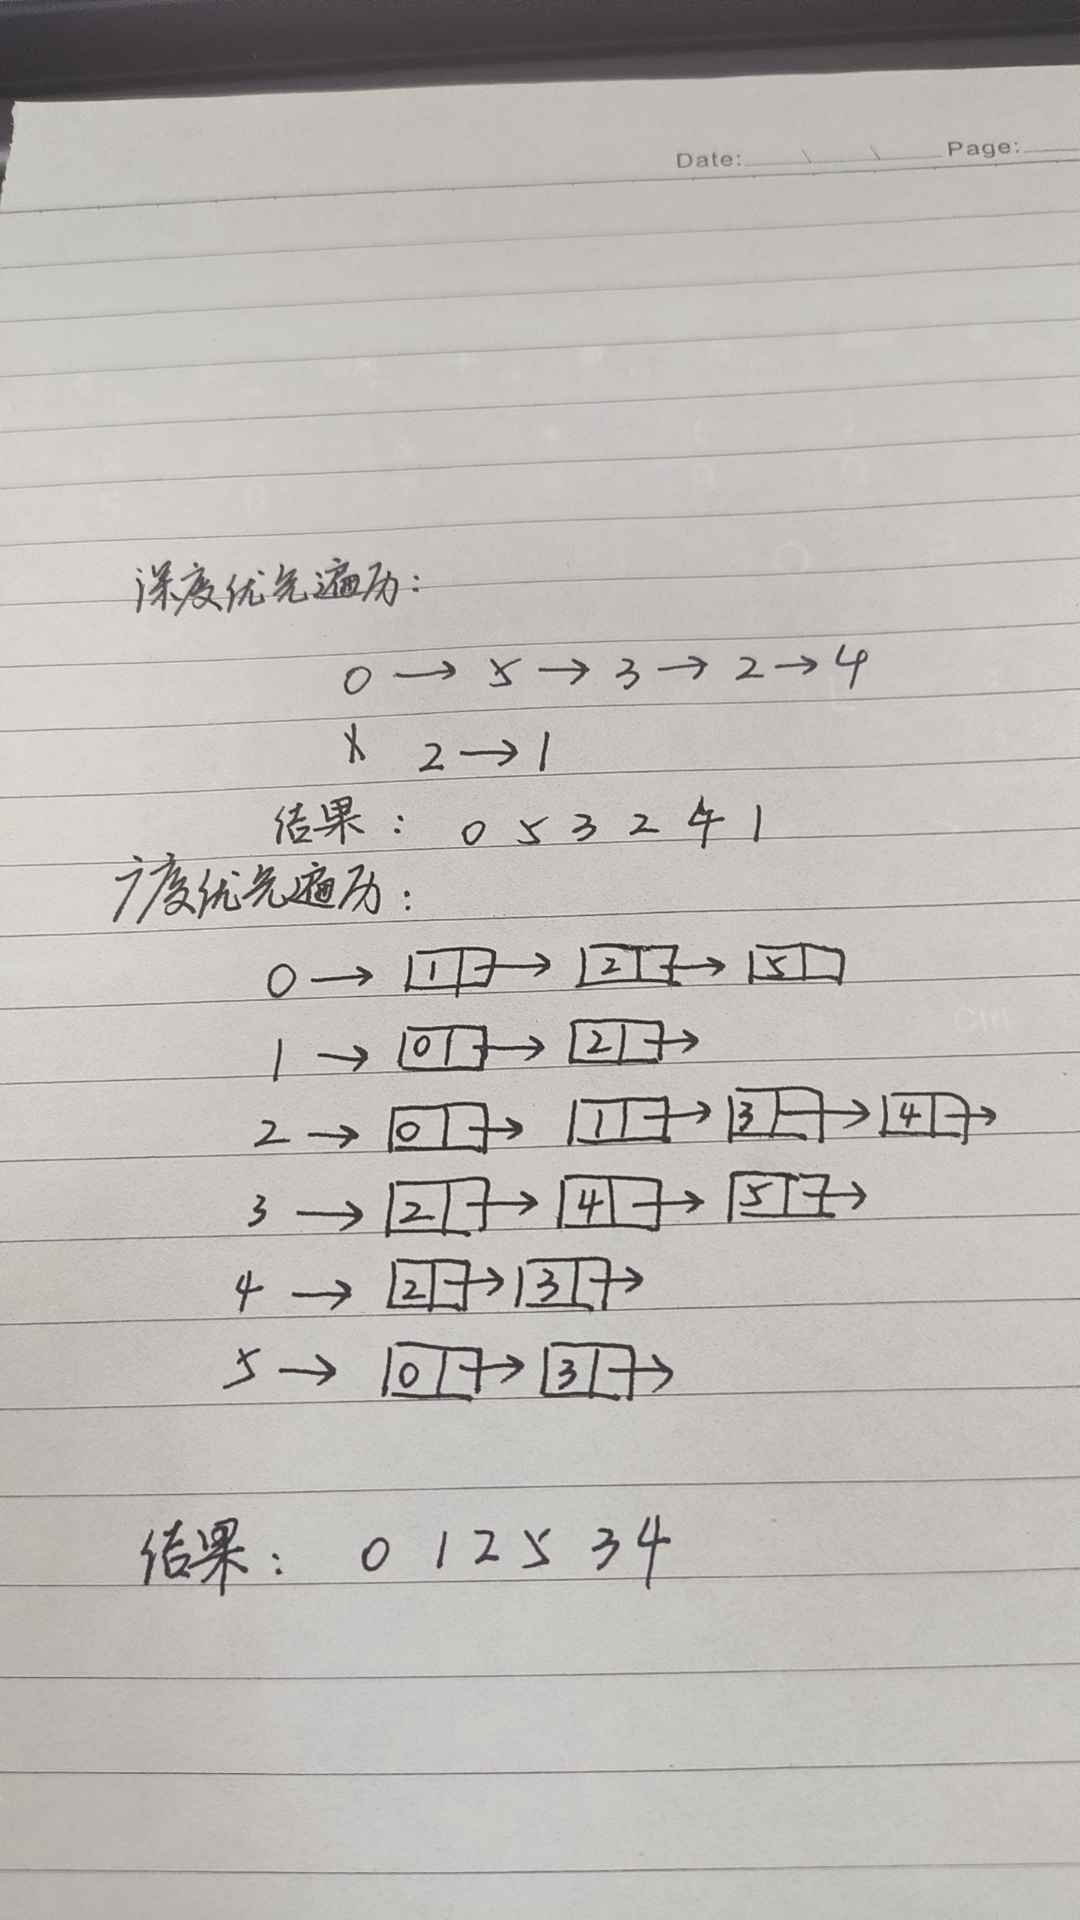 Date: \ \ Page:
深度优先遍历：
0 → 5 → 3 → 2 → 4
2 → 1
结果： 0 5 3 2 4 1
广度优先遍历：
0 → 1 → 2 → 5
1 → 0 → 2 →
2 → 0 → 1 → 3 → 4 →
3 → 2 → 4 → 5 →
4 → 2 → 3 →
5 → 0 → 3 →
结果： 0 1 2 5 3 4